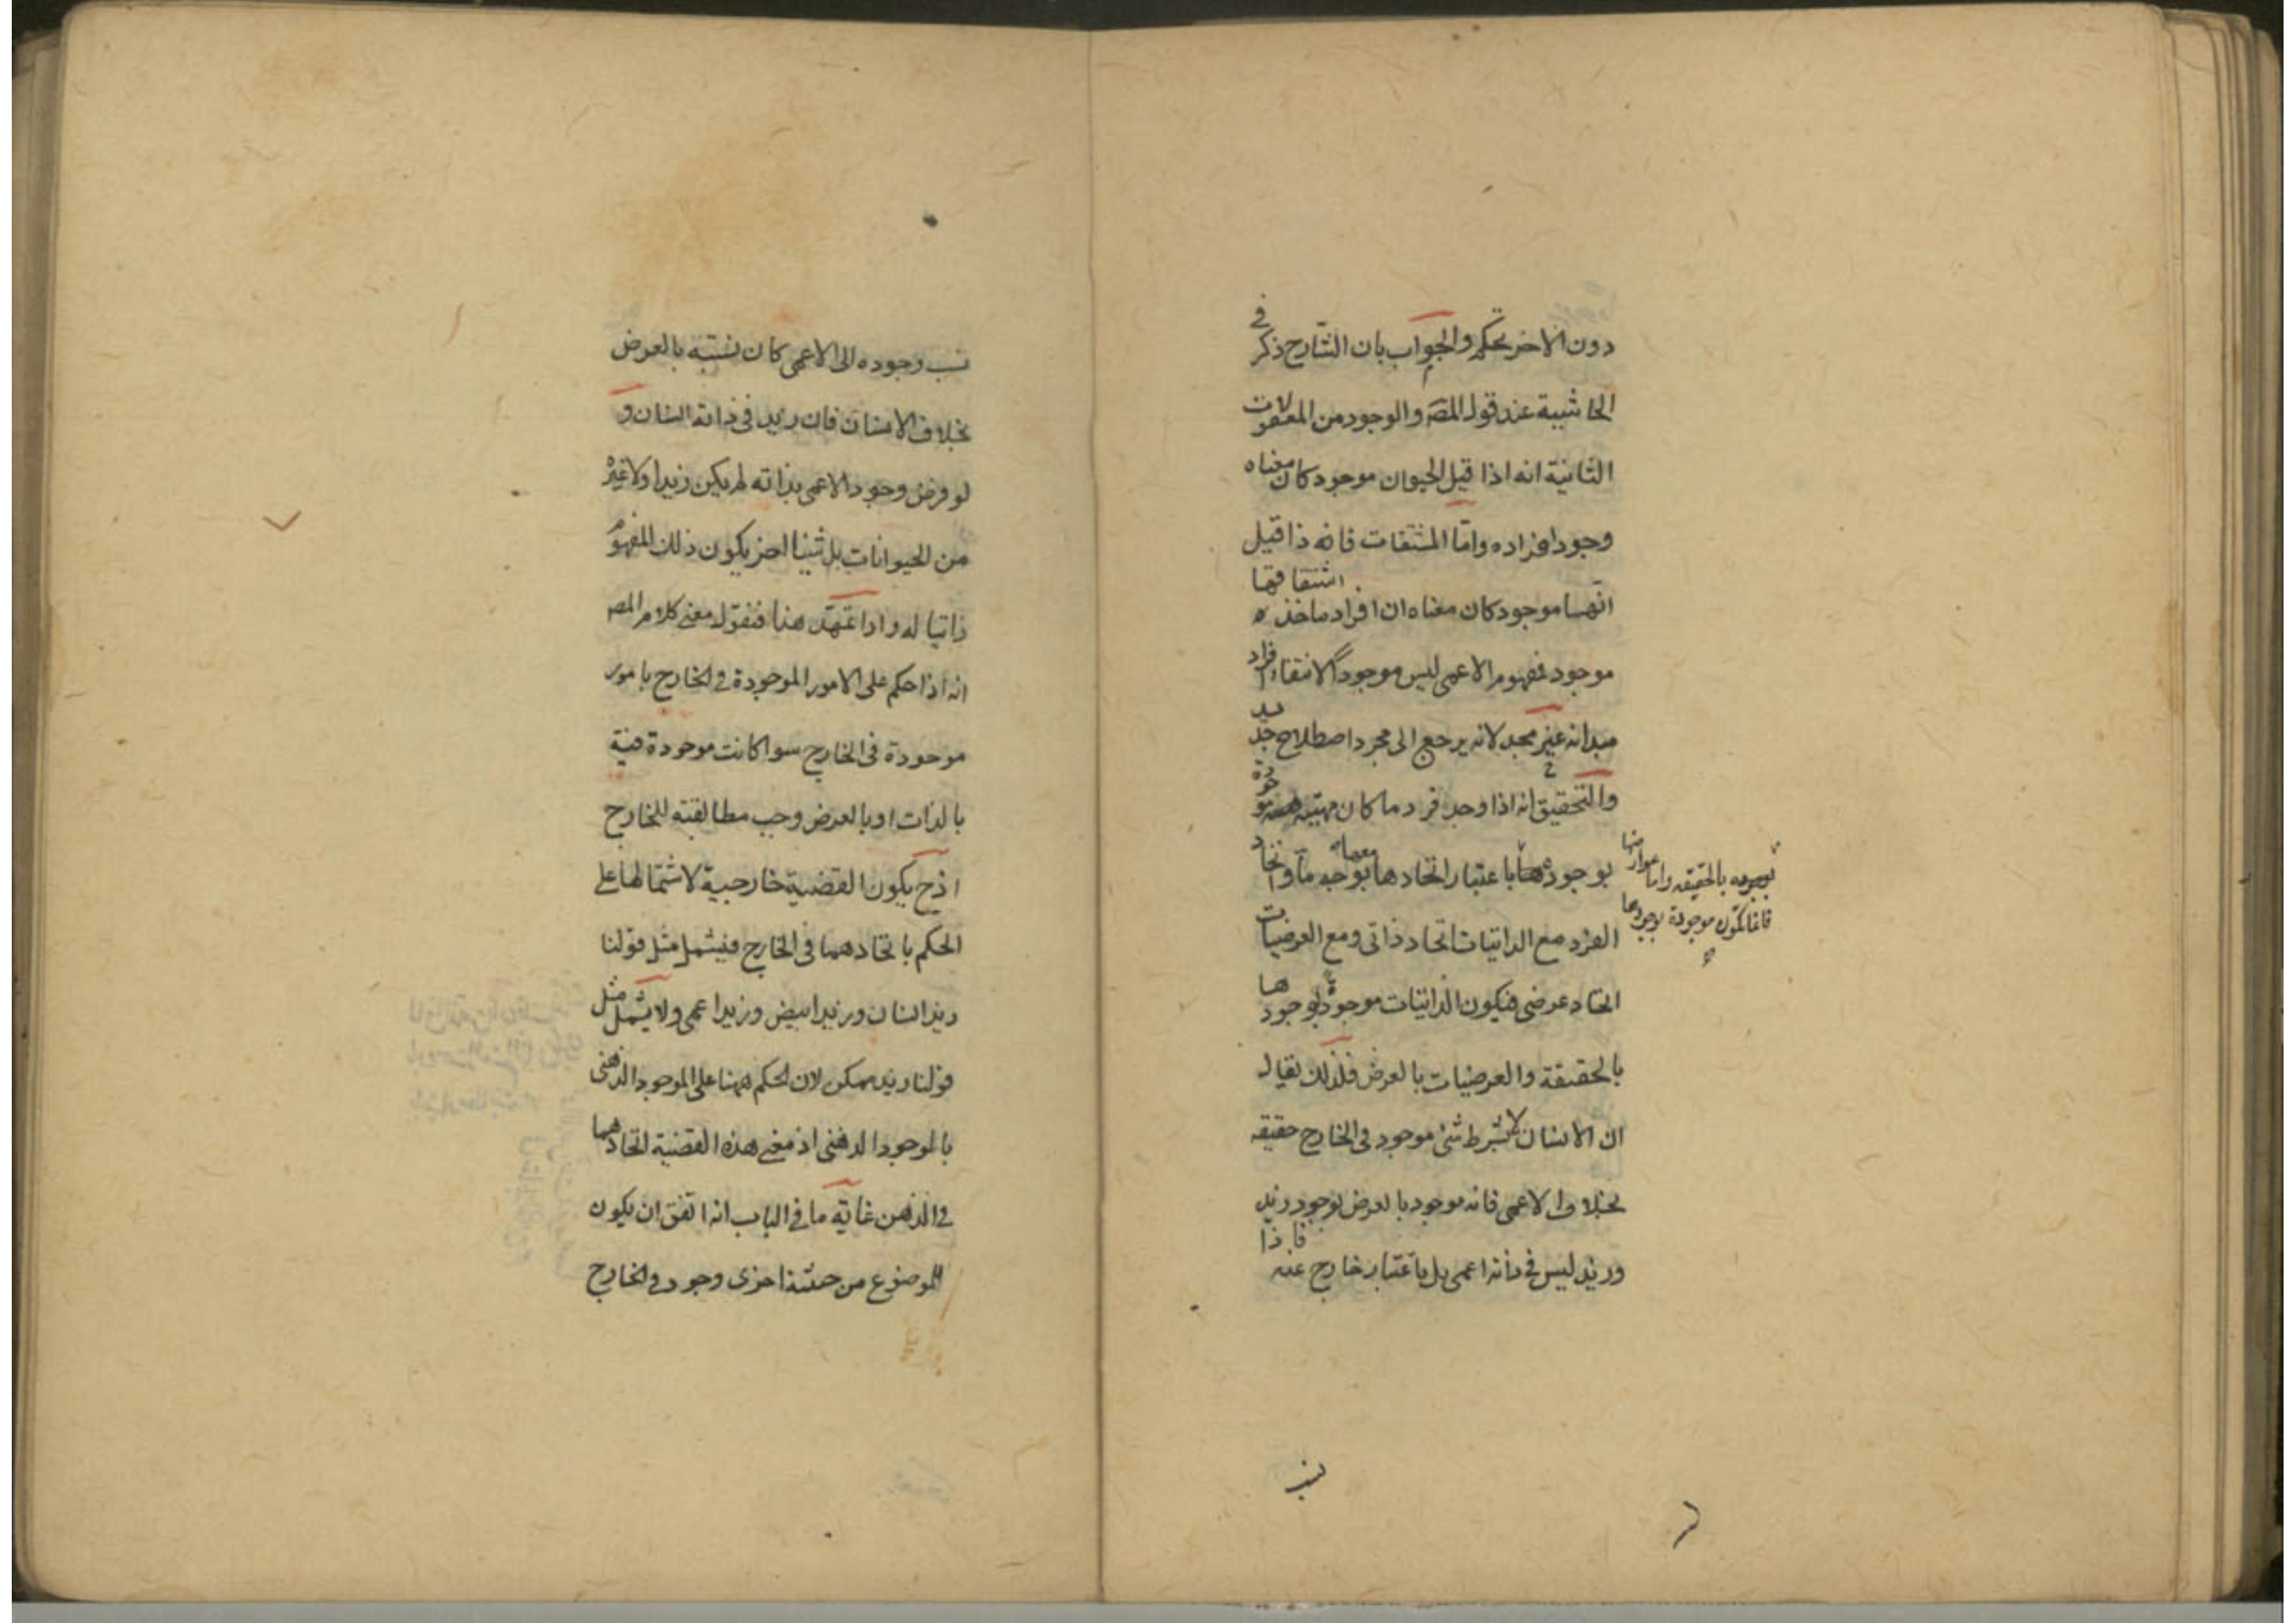 دون الاخر تحكم والجواب بان الشارح ذكر في
الحاشية عند قول المصه والوجود من المعقولات
الثانية انه اذا قيل الحيوان موجود كان معناه
وجود افراده واما المشتقات فانه ذا قيل
انها موجود كان معناه ان افراد ماخذ اشتقاقها
موجود فمفهوم الاعمى ليس موجودا لانتفاء افراد
مبدائه غير مجد لانه يرجع الى مجرد اصطلاح جديد
والتحقيق انه اذا وجد فرد ما كان مهيته موجودة
بوجوده بالحقيقه واما عوارضها
فانما تكون موجودة بوجودها
بوجود باعتبار اتحادها معها بوجه ما واتحاد
الفرد مع الذاتيات اتحاد ذاتى ومع العرضيات
اتحاد عرضى فيكون الذاتيات موجودة بوجودها
بالحقيقة والعرضيات بالعرض فلذلك يقال
ان الانسان لا بشرط شئ موجود فى الخارج حقيقه
بخلاف الاعمى فانه موجود بالعرض بوجود زيد
وزيد ليس فى ذاته اعمى بل باعتبار خارج عنه فاذا
نسب
نسب وجوده الى الاعمى كان نسبته بالعرض
بخلاف الانسان فان زيد فى ذاته انسان و
لو فرض وجود الاعمى بذاته لم يكن زيدا ولا غيره
من الحيوانات بل شيئا اخر يكون ذلك المفهوم
ذاتيا له واذا تمهد هذا فنقول معنى كلام المصه
انه اذا حكم على الامور الموجودة فى الخارج بامور
موجودة فى الخارج سوا كانت موجودة فيه
بالذات او بالعرض وجب مطابقته للخارج
اذ ح يكون القضية خارجية لاشتمالها على
الحكم باتحادهما فى الخارج فيشمل مثل قولنا
زيد انسان وزيد ابيض وزيد اعمى ولا يشمل مثل
قولنا زيد ممكن لان الحكم ههنا على الموجود الذهنى
بالموجود الذهنى اذ معنى هذه القضية اتحادهما
فى الذهن غاية ما فى الباب انه اتفق ان يكون
للموضوع من حيثية اخرى وجود فى الخارج